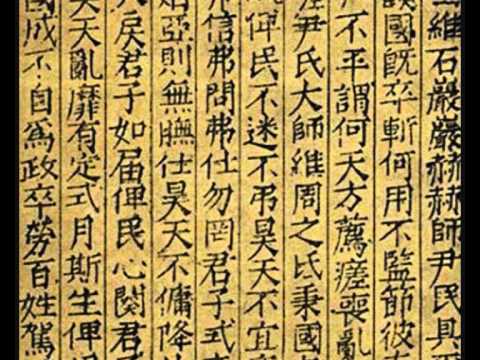 維石巖巖赫赫師尹民具
國旣卒斬何用不監節彼
不平謂何天方薦瘥喪亂
尹氏大師維周之氐秉國
俾民不迷不弔昊天不宜
信弗問弗仕勿罔君子式
亞則無膴仕昊天不傭降
戾君子如届俾民心闋君
天亂靡有定式月斯生俾
國成不自為政卒勞百姓駕